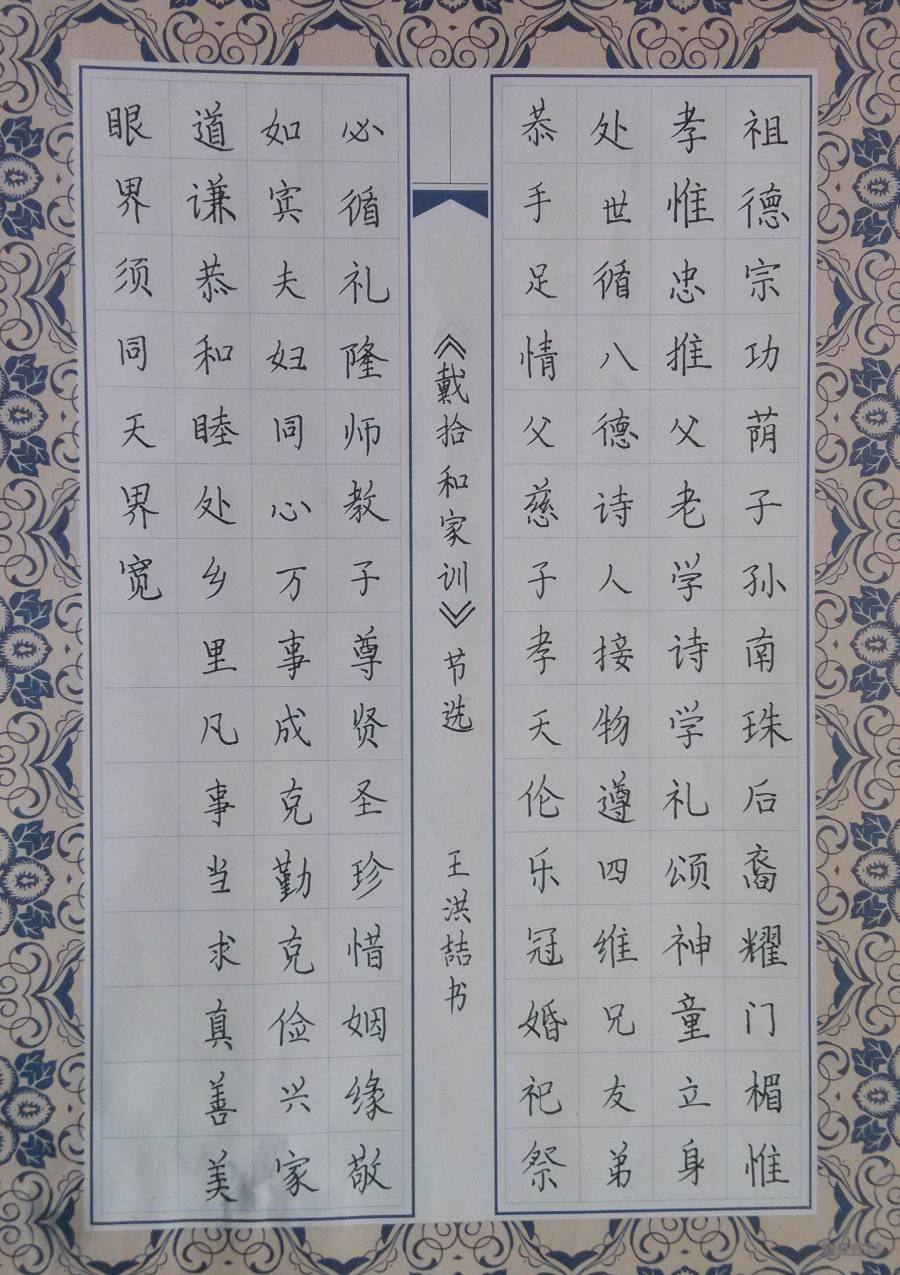 祖德宗功荫子孙南珠后裔耀门楣惟
孝惟忠推父老学诗学礼颂神童立身
处世循八德诗人接物遵四维兄友弟
恭手足情父慈子孝天伦乐冠婚祀祭
《戴拾和家训》节选
王洪喆书
必循礼隆师教子尊贤圣珍惜姻缘敬
如宾夫妇同心万事成克勤克俭兴家
道谦恭和睦处乡里凡事当求真善美
眼界须同天界宽